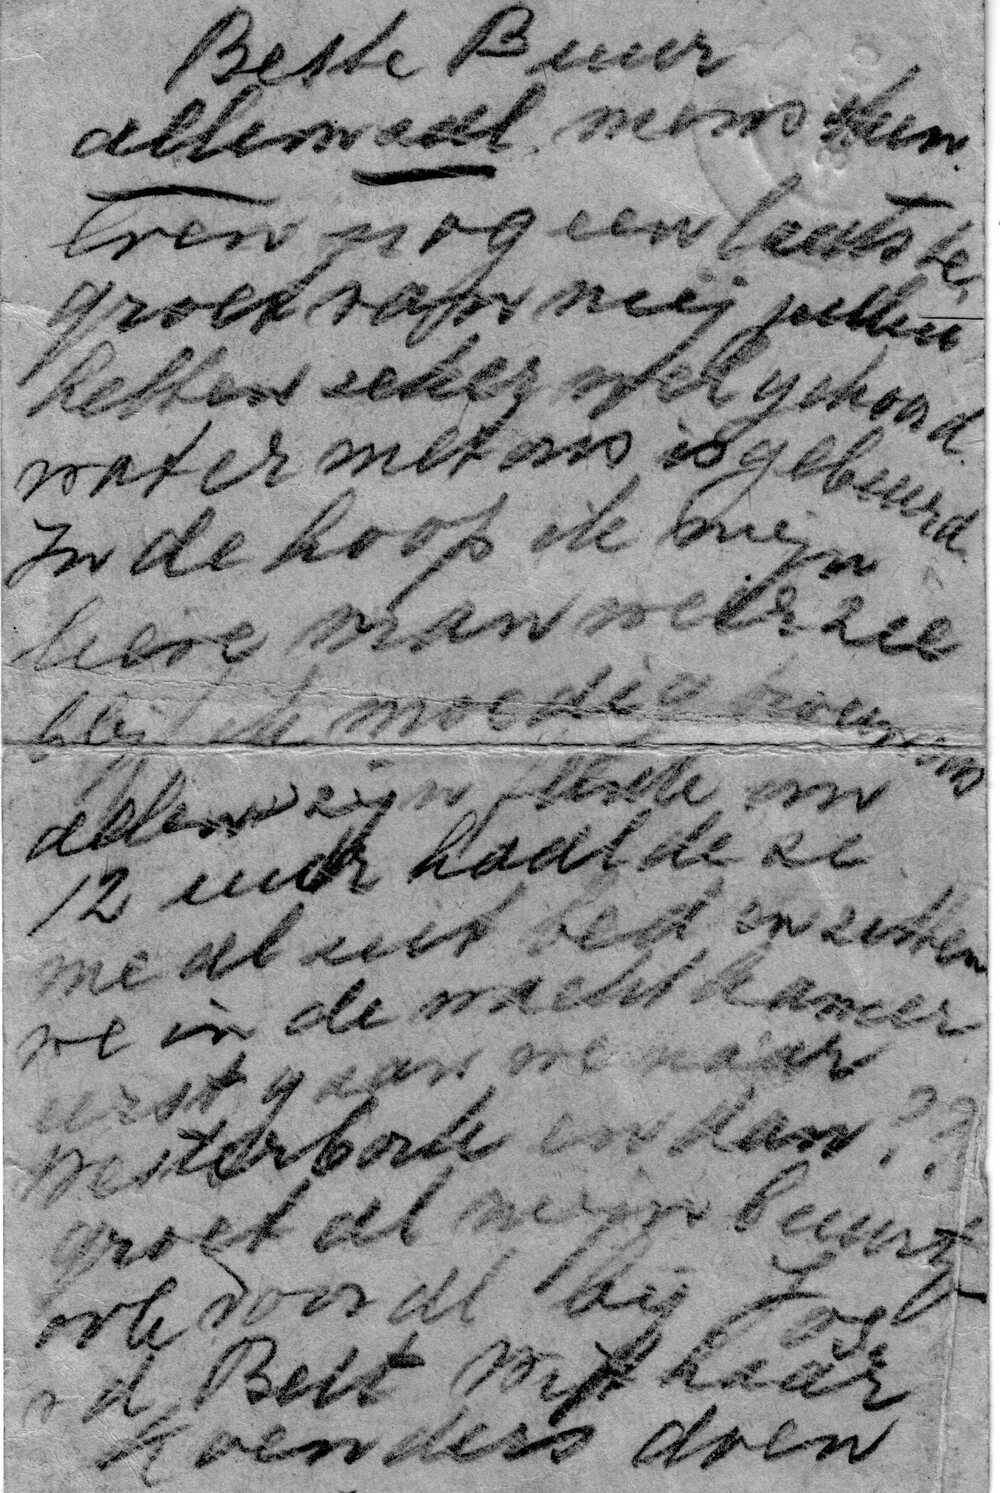 Beste Buur
allemaal. mens
Even nog een laatste
groet van mij jullie
hebben zeker wel gehoord.
wat er met ons is gebeurd.
In de hoop ik mijn
lieve man weer zie
blijf ik moedig
allen zijn om
12 uur haalde ze
me al uit bed en zitten
we in de wachtkamer
eerst gaan we naar
Westerbork en dan ??
groet al mijn buurtj
ook vooral bij Jos
v d Belt wift haar
Koenders doen